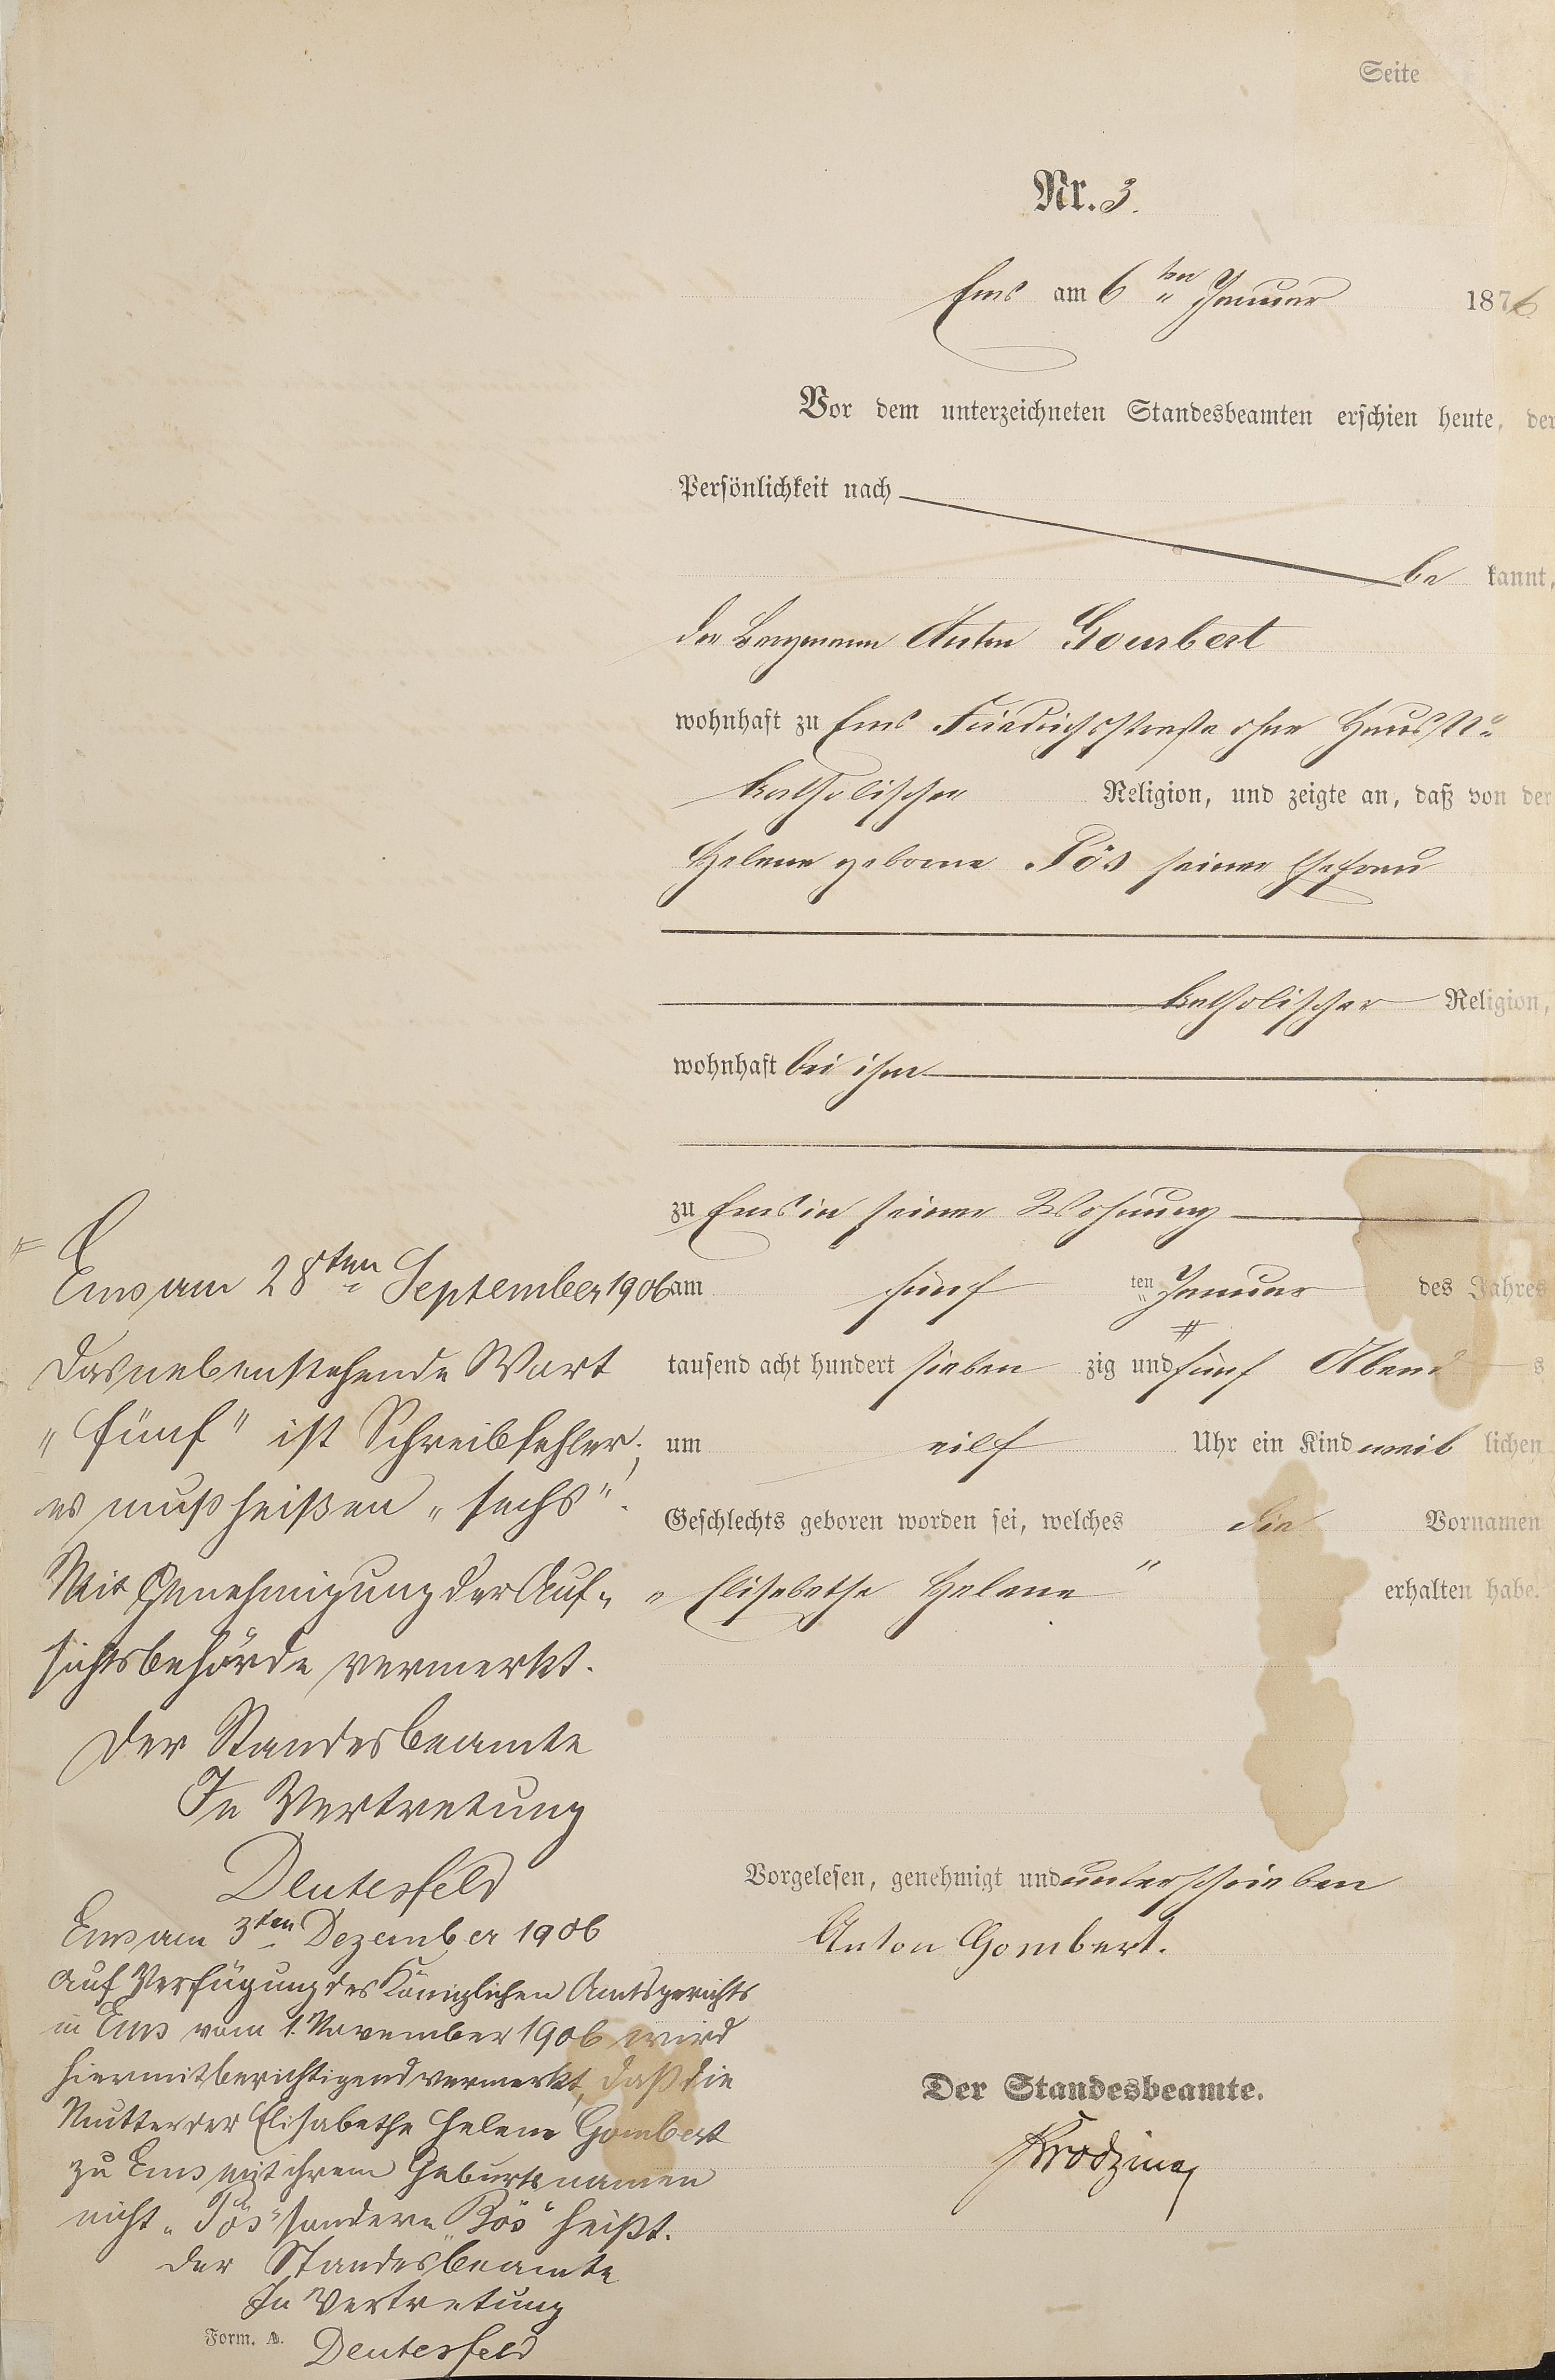 Seite
Nr. 3.
Ems am 6ten Januar 1876
Vor dem unterzeichneten Standesbeamten erschien heute, der
Persönlichkeit nach
be kannt,
der Bergmann Anton Gombert
wohnhaft zu Ems Friedrichsstraße ohne Haus No
katholischer Religion, und zeigte an, daß von der
Helene geborne Pös seiner Ehefrau
katholischer Religion,
wohnhaft bei ihm
zu Ems in seiner Wohnung
am fünf ten Januar des Jahres
tausend acht hundert sieben zig und fünf Abend s
um eilf Uhr ein Kind weib lichen
Geschlechts geboren worden sei, welches die Vornamen
„Elisabethe Helene" erhalten habe.
Vorgelesen, genehmigt und unterschrieben
Anton Gombert.
Der Standesbeamte.
Ems am 28ten September 1906
Das nebenstehende Wort
„fünf" ist Schreibfehler;
es muß heißen „sechs".
Mit Genehmigung der Auf-
sichtsbehörde vermerkt.
Der Standesbeamte
In Vertretung
Deutesfeld
Ems am 3ten Dezember 1906
Auf Verfügung des Königlichen Amtsgerichts
in Ems vom 1. November 1906 wird
hiermit berichtigend vermerkt, daß die
Mutter der Elisabethe Helene Gombert
zu Ems mit ihrem Geburtsnamen
nicht „Pös" sondern „Bös" heißt.
Der Standesbeamte
In Vertretung
Deutesfeld
Form. A.